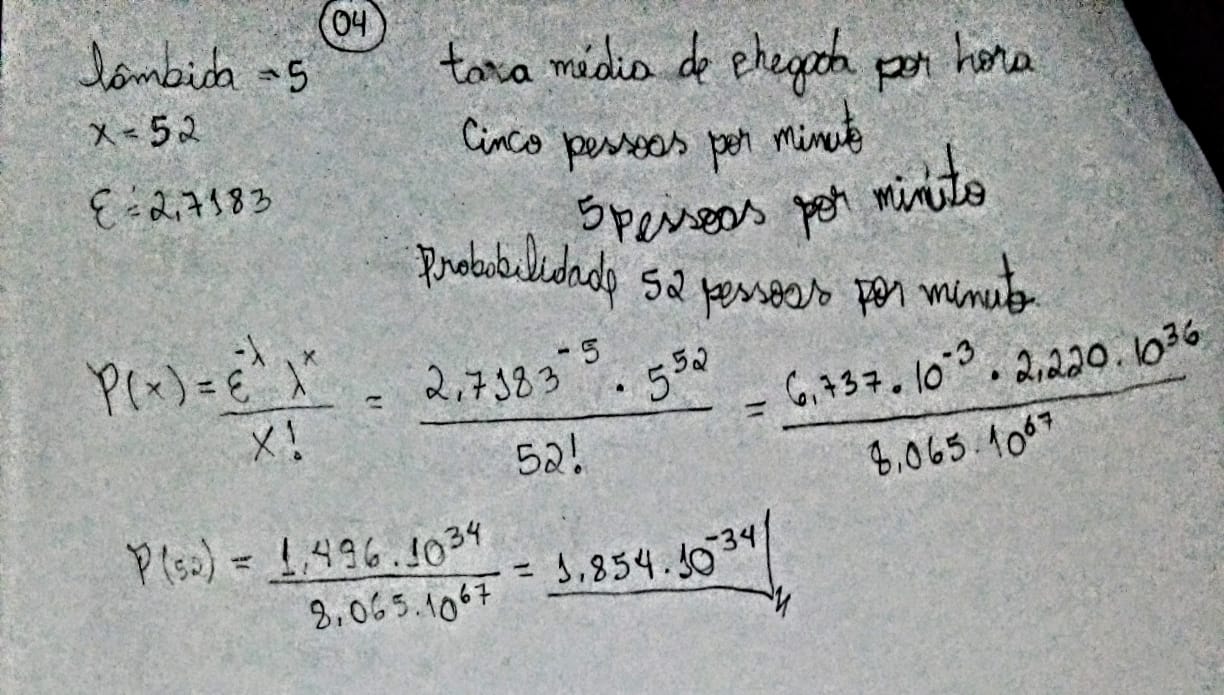 04
lâmbida = 5
taxa média de chegada por hora
x = 52
Cinco pessoas por minuto
ε = 2,7183
5 pessoas por minuto
Probobilidade 52 pessoas por minuto
P(x) = ε^-λ λ^x / x! = 2,7183^-5 · 5^52 / 52! = 6,737 · 10^-3 · 2,220 · 10^36 / 8,065 · 10^67
P(52) = 1,496 · 10^34 / 8,065 · 10^67 = 1,854 · 10^-34